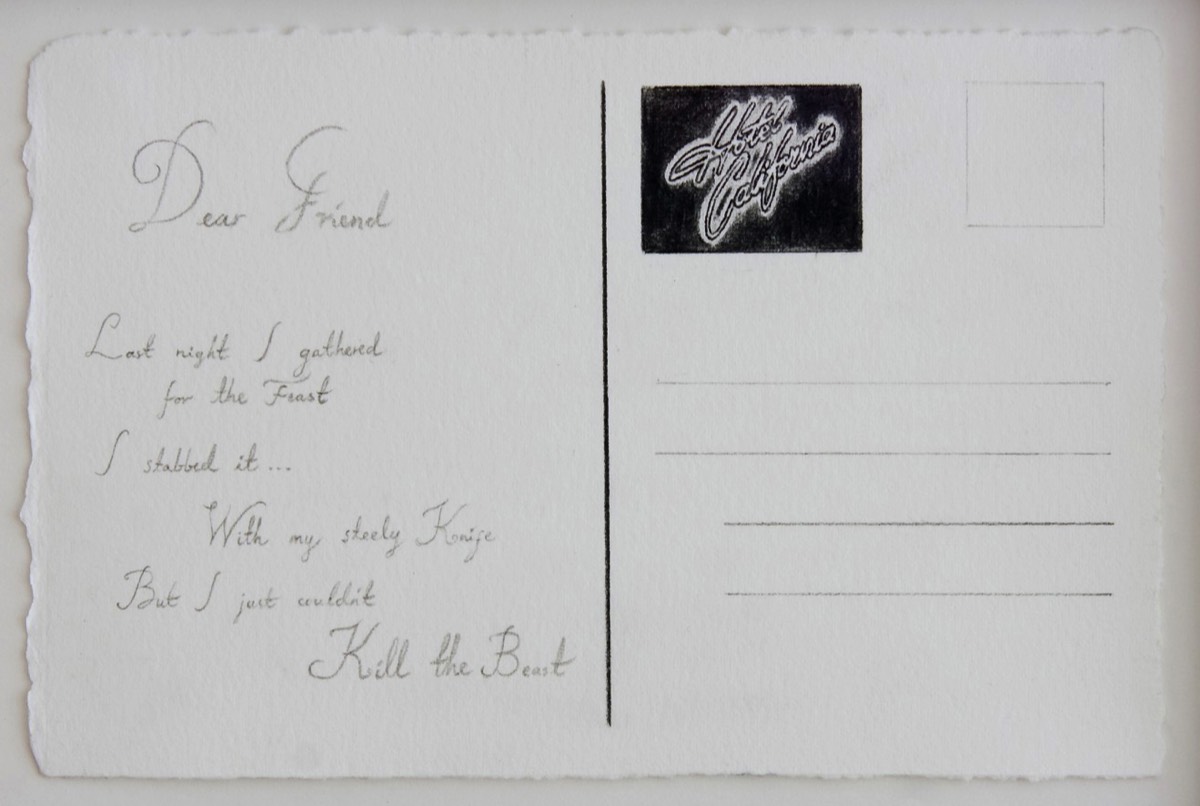 Dear Friend
Last night I gathered
for the Feast
I stabbed it...
With my steely Knife
But I just couldn't
Kill the Beast
Hotel
California